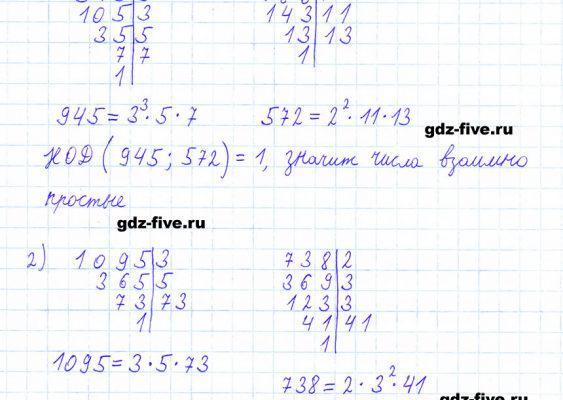 105|3 143|11
35|5 13|13
7|7 1|
1|
945 = 3³·5·7 572 = 2²·11·13
gdz-five.ru
НОД (945; 572) = 1, значит числа взаимно
простые
gdz-five.ru
2) 1095|3 738|2
365|5 369|3
73|73 123|3
1| 41|41
1|
1095 = 3·5·73
738 = 2·3²·41
gdz-five.ru